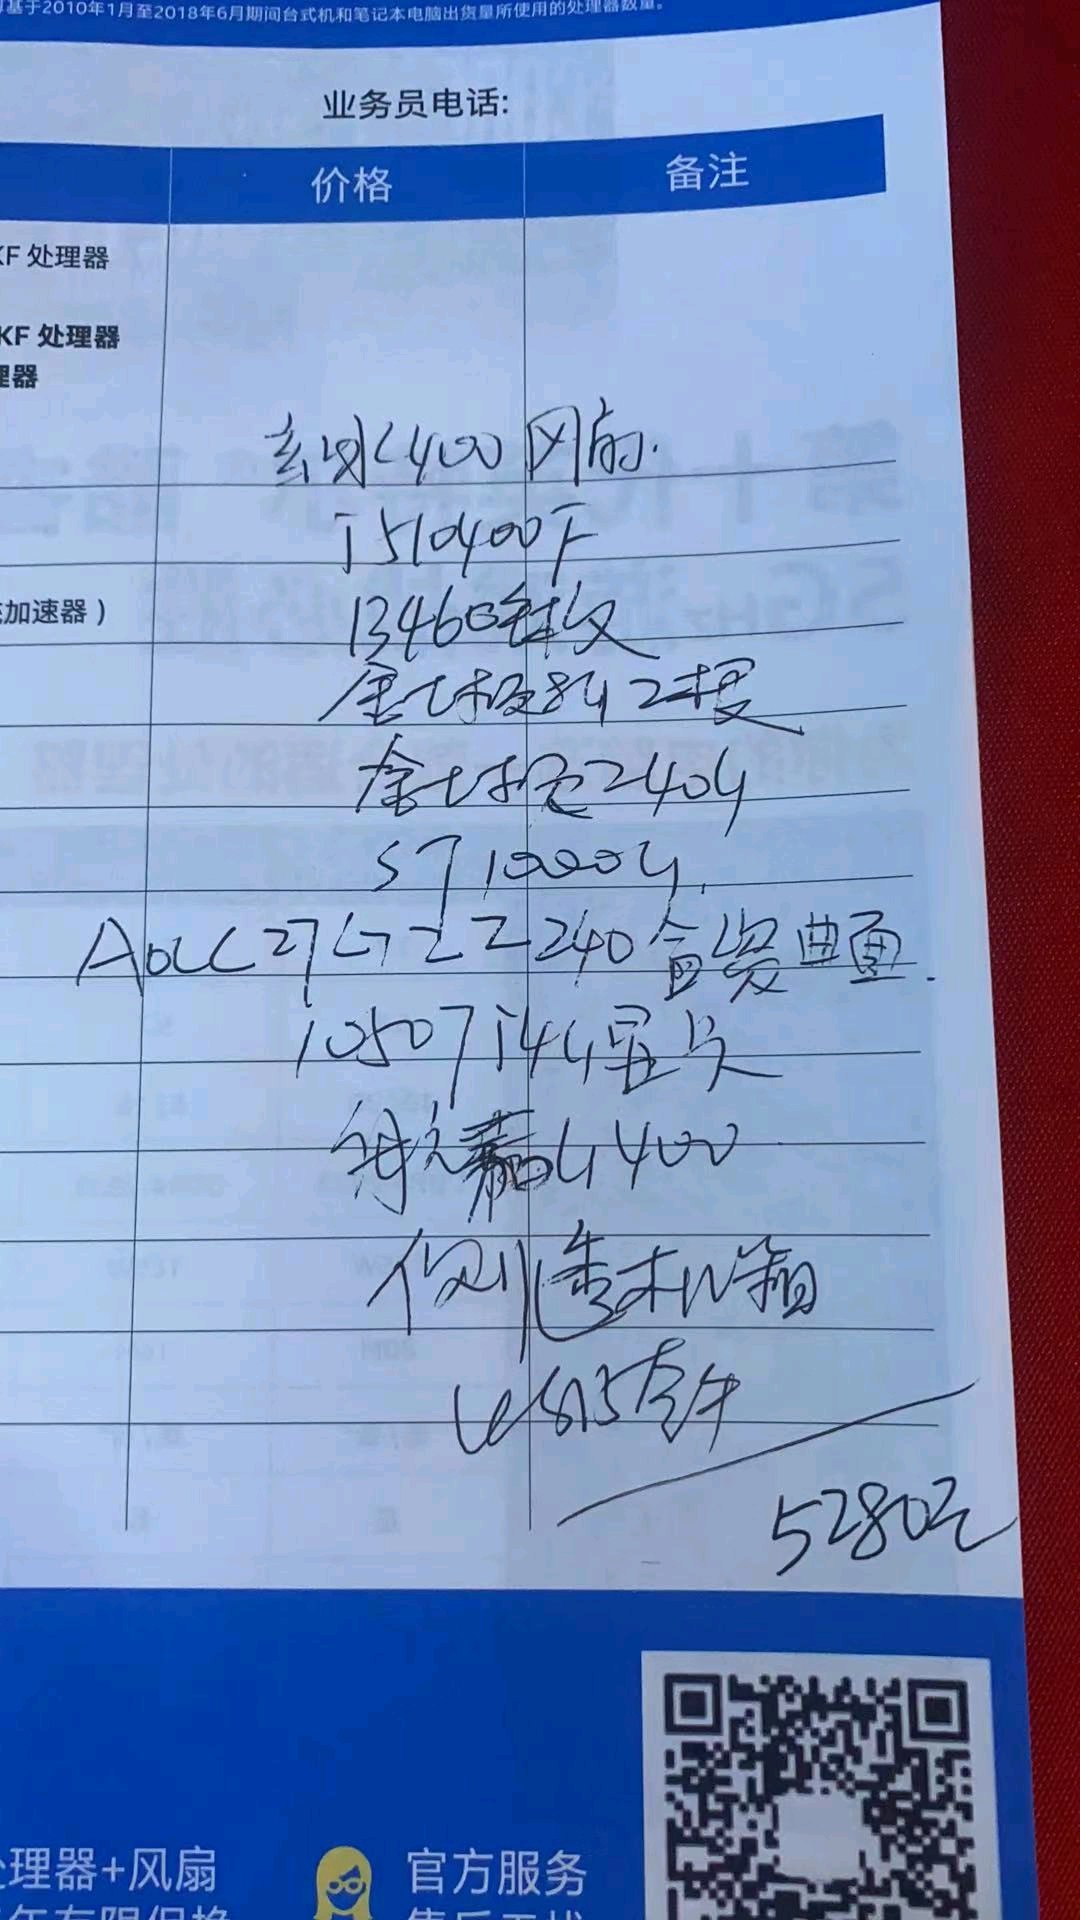 基于2010年1月至2018年6月期间台式机和笔记本电脑出货量所使用的处理器数量。
业务员电话:
价格 备注
KF 处理器
KF 处理器
理器
玄冰400 网商
i510400F
加速器）
B460
金士顿8G2根
金士顿240G
ST1000G
AOC 27G2Z 240 盒装曲面
1050Ti4G显卡
400
机箱
套件
5280元
处理器+风扇
官方服务